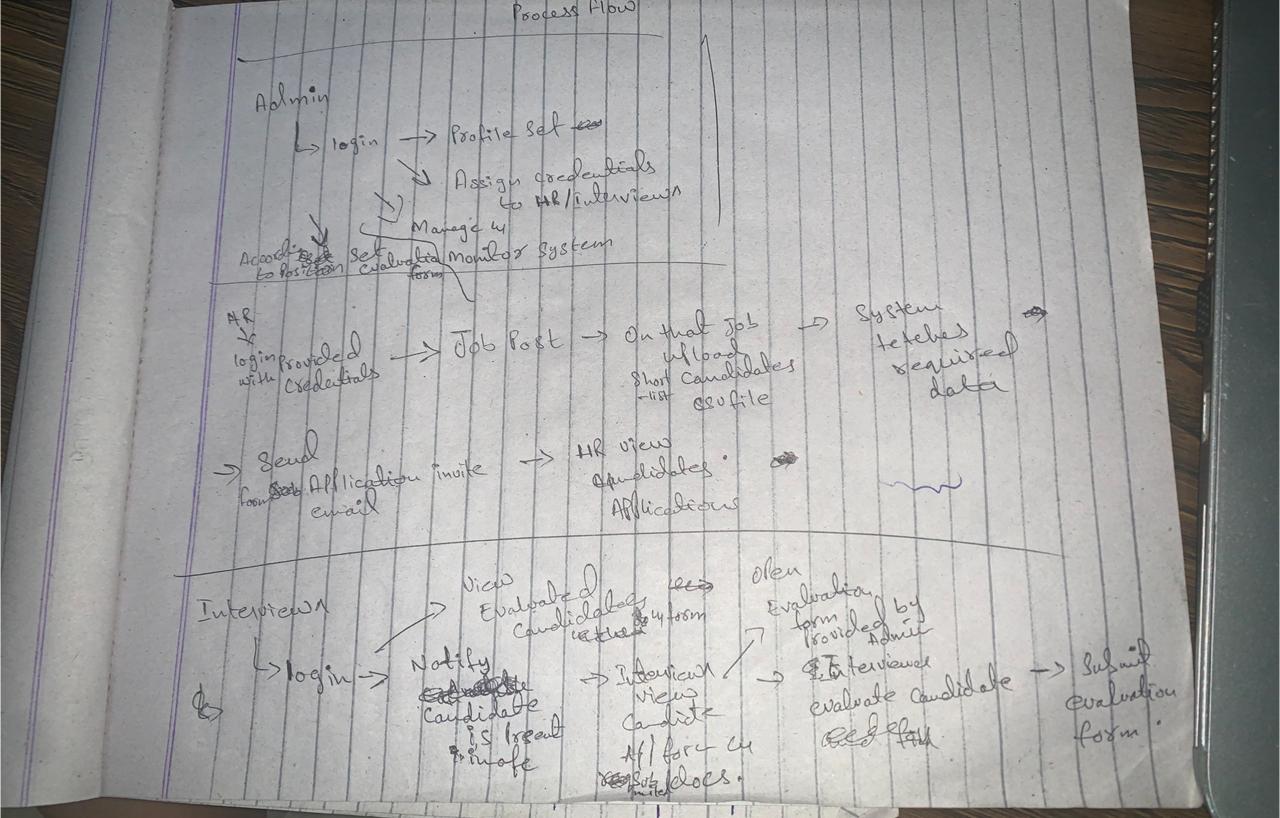 Process Flow
Admin
login → Profile Set
Assign credentials
to HR/Interviewr
Manage
Monitor System
Accordi
to Position
Set
evaluation
form
HR
login
with
Provided
Credentials
→ Job Post → On that Job
upload
Short
-list
Candidates
csv file
→ System
fetches
required
data
→ Send
form Application invite
email
→ HR view
candidates
Applications
Interviewr
login →
View
Evaluated
Candidates
form
Notify
Candidate
is
→ Interviewr
view
docs.
Open
Evaluation
form
Provided by
Admin
→ Interviewer
evaluate candidate
→ Submit
evaluation
form.